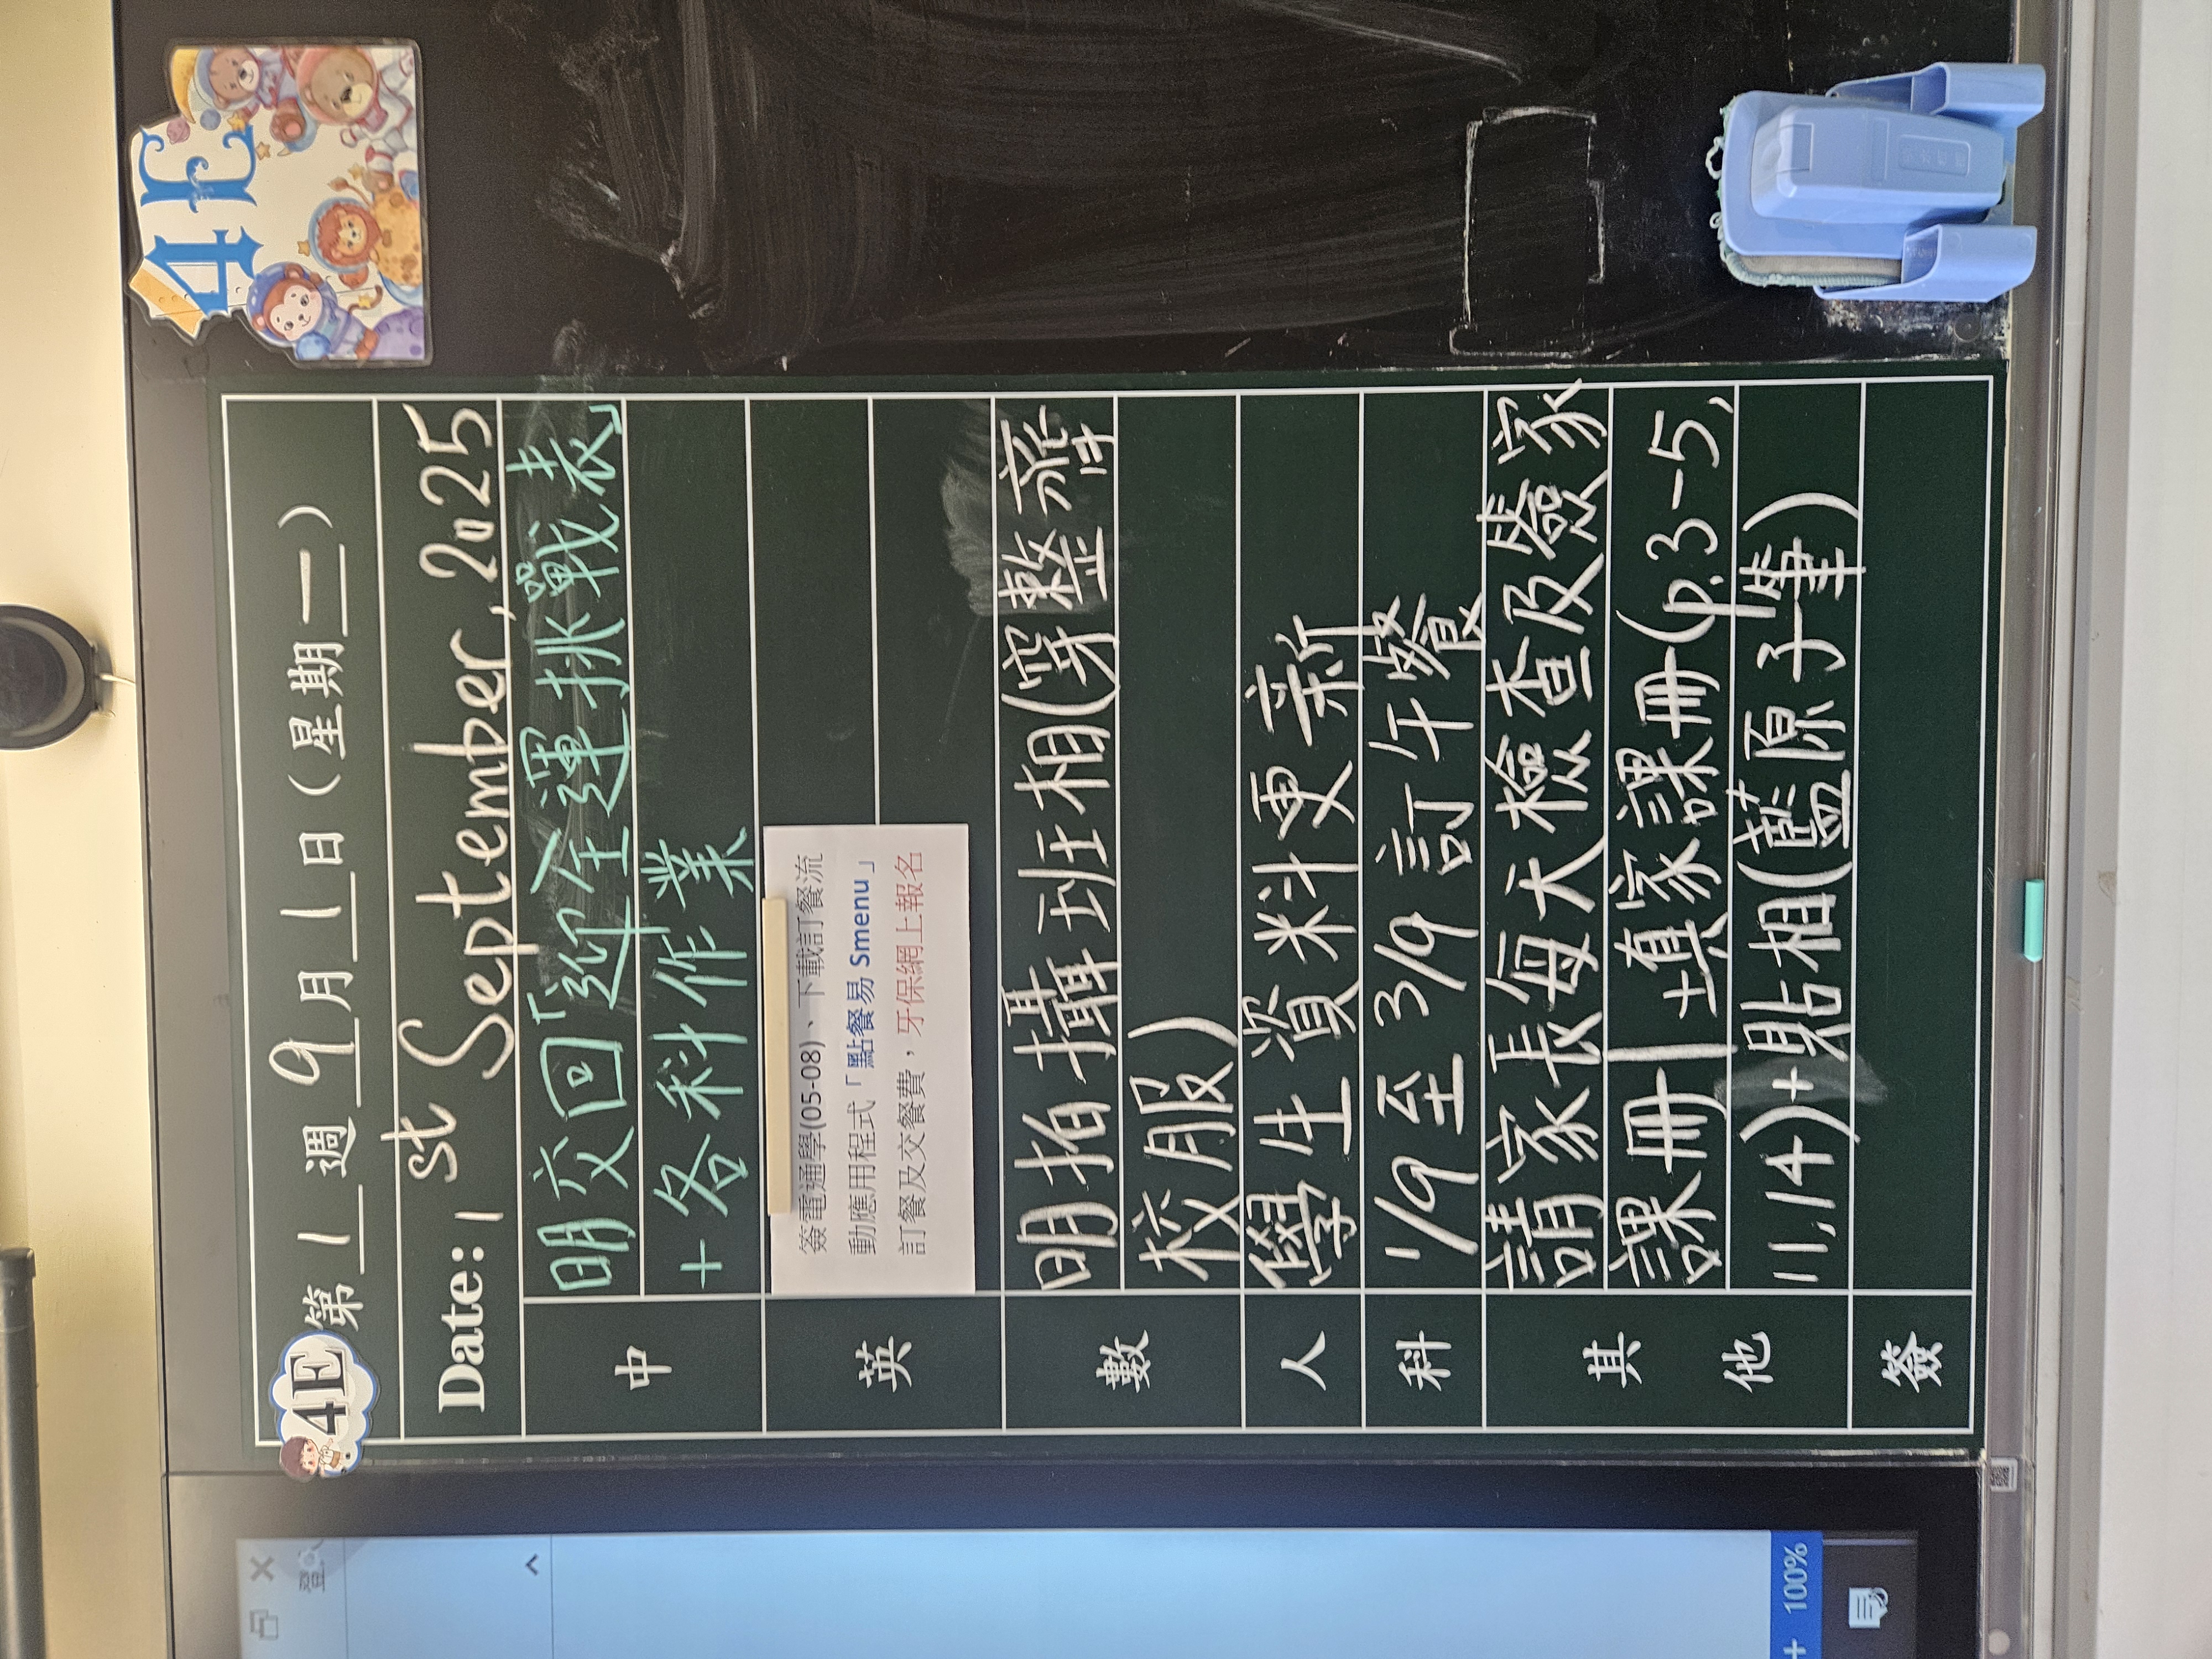 4E
4E
第1週 9月1日(星期一)
Date: 1st September, 2025
中
明交回「迎全運挑戰表」
+各科作業
英
簽電通學(05-08)、下載訂餐流
動應用程式「點餐易 Smenu」
訂餐及交餐費，牙保網上報名
數
明拍攝班相(穿整齊
校服)
人
學生資料更新
科
1/9至3/9訂午餐
其他
請家長每天檢查及簽家
課冊|填家課冊(p.3-5,
11,14)+貼相(藍原子筆)
簽
登
100%